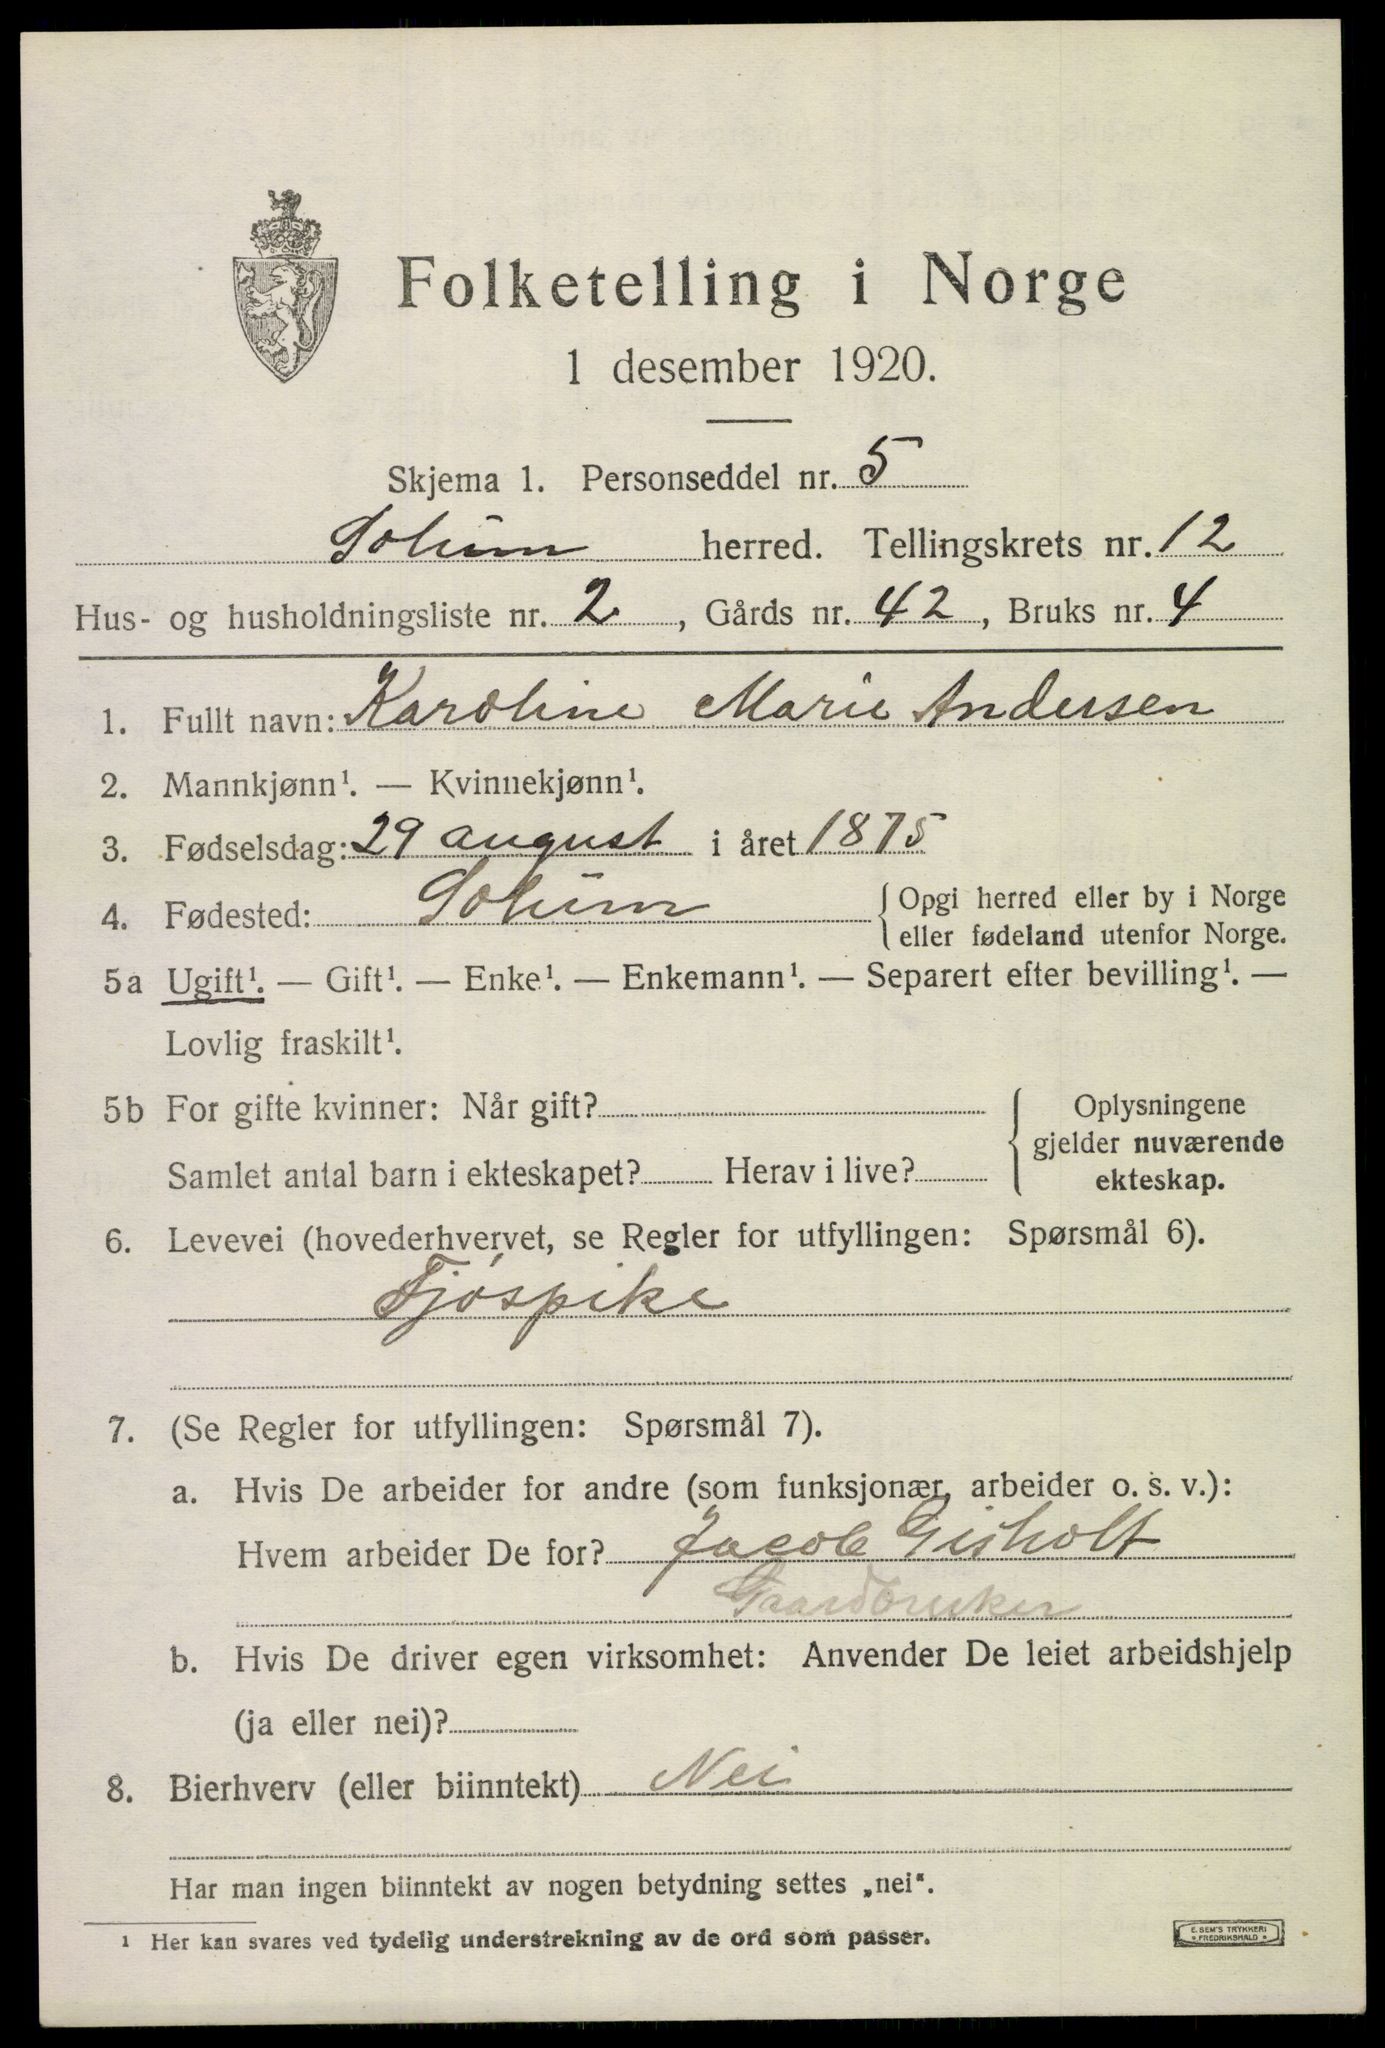 Folketelling i Norge
1 desember 1920.
Skjema 1. Personseddel nr. 5
Solum herred. Tellingskrets nr. 12
Hus- og husholdningsliste nr. 2, Gårds nr. 42, Bruks nr. 4
1. Fullt navn: Karoline Marie Andersen
2. Mannkjønn¹. — Kvinnekjønn¹.
3. Fødselsdag: 29 august i året 1875
4. Fødested: Solum { Opgi herred eller by i Norge
eller fødeland utenfor Norge.
5a Ugift¹. — Gift¹. — Enke¹. — Enkemann¹. — Separert efter bevilling¹. —
Lovlig fraskilt¹.
5b For gifte kvinner: Når gift?
Samlet antal barn i ekteskapet? Herav i live?
{ Oplysningene
gjelder nuværende
ekteskap.
6. Levevei (hovederhvervet, se Regler for utfyllingen: Spørsmål 6).
Fjøspike
7. (Se Regler for utfyllingen: Spørsmål 7).
a. Hvis De arbeider for andre (som funksjonær, arbeider o. s. v.):
Hvem arbeider De for? Jacob Gisholt
Gaardbruker
b. Hvis De driver egen virksomhet: Anvender De leiet arbeidshjelp
(ja eller nei)?
8. Bierhverv (eller biinntekt) Nei
Har man ingen biinntekt av nogen betydning settes „nei“.
¹ Her kan svares ved tydelig understrekning av de ord som passer.
E. SEM'S TRYKKERI
* FREDRIKSHALD *